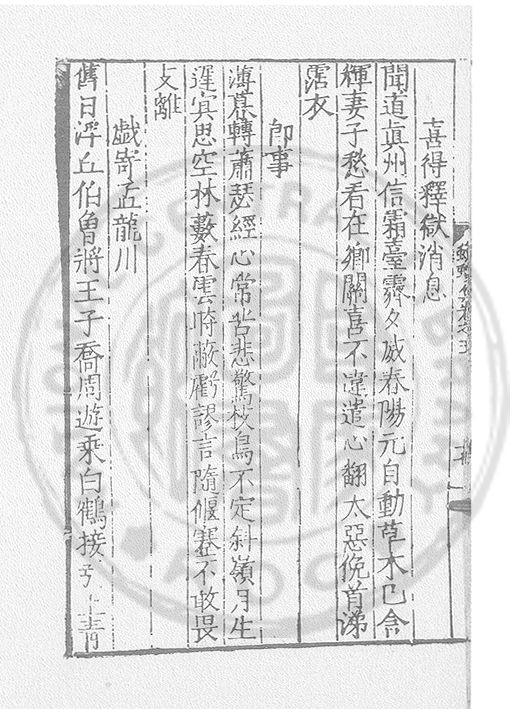 喜得釋獄消息
聞道眞州信霜臺霽夕威春陽元自動草木已含
輝妻子愁看在鄉關喜不違遣心翻太惡俛首涕
霑衣
卽事
薄暮轉蕭瑟經心常苦悲驚枝鳥不定斜嶺月生
遲宾思空林藪春雲時蔽虧謬言隨偃蹇不敢畏
支離
戯寄孟龍川
舊日浮丘伯曾將王子喬周遊乘白鶴接上青